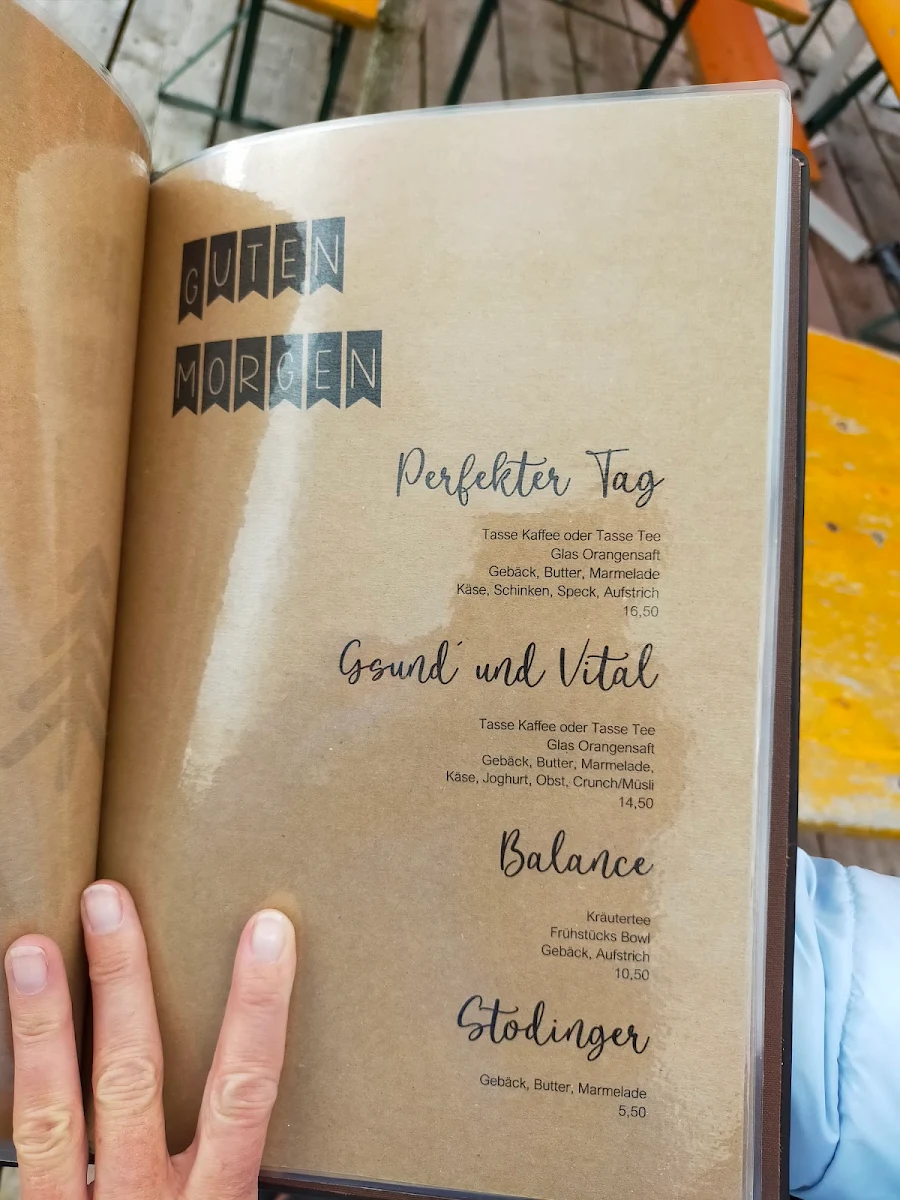 GUTEN
MORGEN
Perfekter Tag
Tasse Kaffee oder Tasse Tee
Glas Orangensaft
Gebäck, Butter, Marmelade
Käse, Schinken, Speck, Aufstrich
16,50
Gsund´ und Vital
Tasse Kaffee oder Tasse Tee
Glas Orangensaft
Gebäck, Butter, Marmelade,
Käse, Joghurt, Obst, Crunch/Müsli
14,50
Balance
Kräutertee
Frühstücks Bowl
Gebäck, Aufstrich
10,50
Stodinger
Gebäck, Butter, Marmelade
5,50